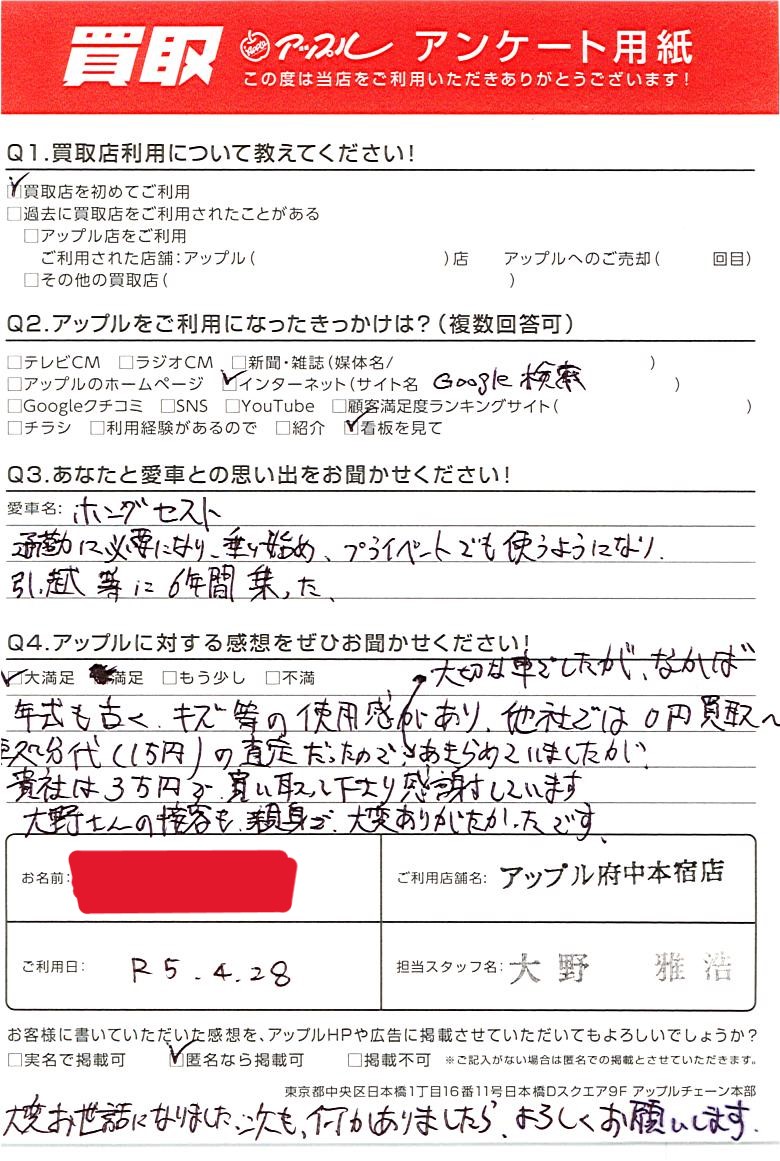 買取 Apple アップル アンケート用紙
この度は当店をご利用いただきありがとうございます!
Q1.買取店利用について教えてください!
☑買取店を初めてご利用
□過去に買取店をご利用されたことがある
□アップル店をご利用
ご利用された店舗:アップル( )店 アップルへのご売却( 回目)
□その他の買取店( )
Q2.アップルをご利用になったきっかけは?(複数回答可)
□テレビCM □ラジオCM □新聞・雑誌(媒体名/ )
□アップルのホームページ ☑インターネット(サイト名 Google 検索 )
□Googleクチコミ □SNS □YouTube □顧客満足度ランキングサイト( )
□チラシ □利用経験があるので □紹介 ☑看板を見て
Q3.あなたと愛車との思い出をお聞かせください!
愛車名: ホンダ ゼスト
通勤に必要になり、乗り始め、プライベートでも使うようになり、
引越等に6年間乗った、
Q4.アップルに対する感想をぜひお聞かせください!
☑大満足 満足 □もう少し □不満
大切な車でしたが、なかば
年式も古く、キズ等の使用感があり、他社では0円買取や
処分代(1万円)の査定だったので、あきらめていましたが、
貴社は3万円で買い取って下さり感謝しています
大野さんの接客も、親身で、大変ありがたかったです、
お名前:
ご利用店舗名: アップル府中本宿店
ご利用日: R5.4.28
担当スタッフ名: 大野 雅浩
お客様に書いていただいた感想を、アップルHPや広告に掲載させていただいてもよろしいでしょうか?
□実名で掲載可 ☑匿名なら掲載可 □掲載不可 ※ご記入がない場合は匿名での掲載とさせていただきます。
東京都中央区日本橋1丁目16番11号日本橋Dスクエア9F アップルチェーン本部
大変お世話になりました、次も、何かありましたら、よろしくお願いします.